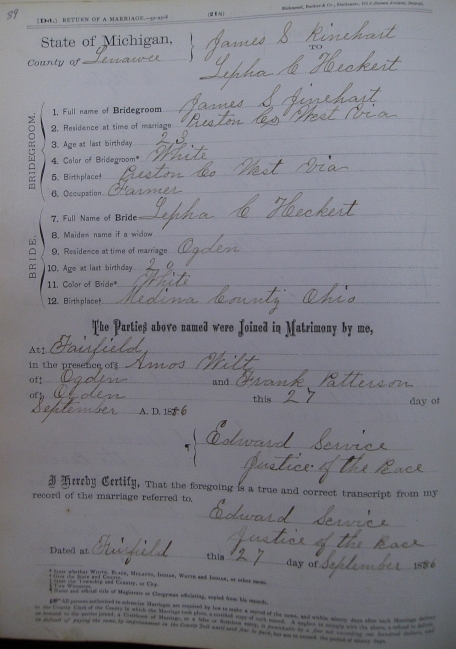 89
[D4.] RETURN OF A MARRIAGE. (218)
State of Michigan,
County of Lenawee
James S Rinehart
TO
Lepha C Heckert
BRIDEGROOM.
1. Full name of Bridegroom James S Jinehart
2. Residence at time of marriage Preston Co West Via
3. Age at last birthday 23
4. Color of Bridegroom* White
5. Birthplace† Preston Co West Via
6. Occupation Farmer
BRIDE.
7. Full Name of Bride Lepha C Heckert
8. Maiden name if a widow
9. Residence at time of marriage Ogden
10. Age at last birthday 20
11. Color of Bride* White
12. Birthplace† Medina County Ohio
The Parties above named were Joined in Matrimony by me,
At‡ Fairfield
in the presence of§ Amos Wilt
of‡ Ogden and Frank Patterson
of‡ Ogden this 27 day of
September A. D. 1886
Edward Service
Justice of the Peace
I Hereby Certify, That the foregoing is a true and correct transcript from my
record of the marriage referred to.
Edward Service
Justice of the Peace
Dated at Fairfield this 27 day of September 1886
* State whether White, Black, Mulatto, Indian, White and Indian, or other races.
† Give the State and County.
‡ State the Township and County, or City.
§ Two Witnesses.